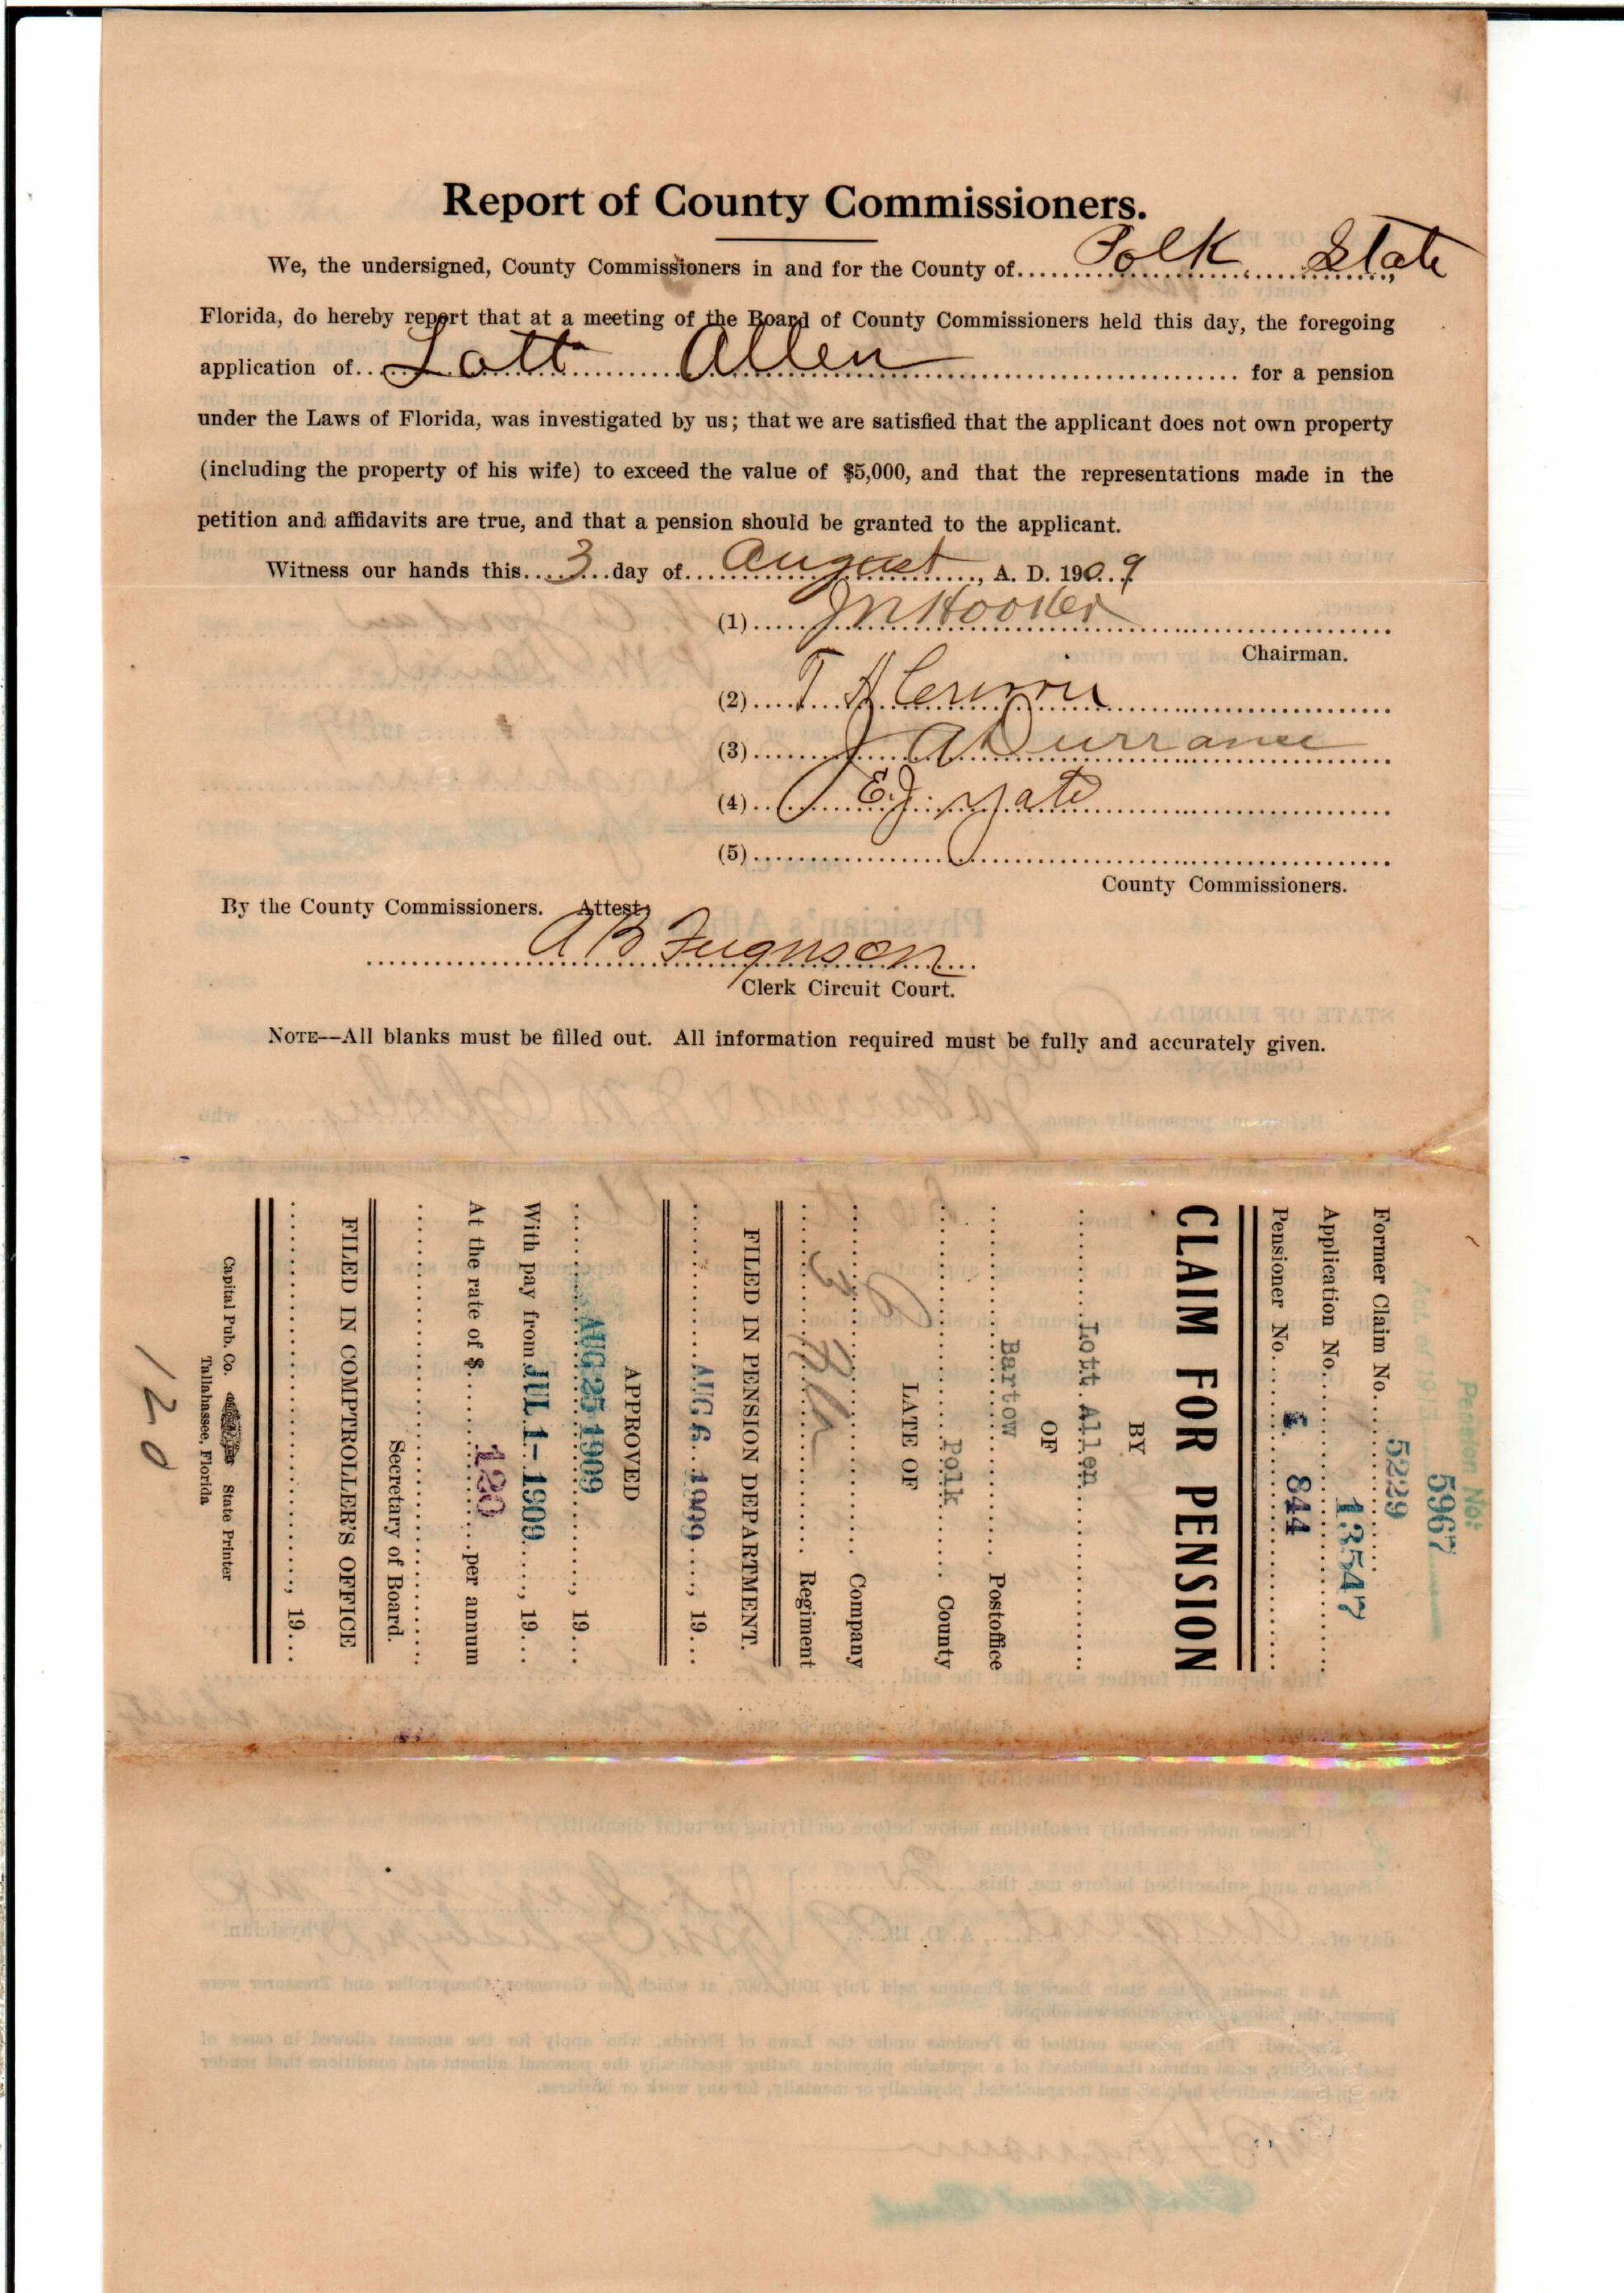 Report of County Commissioners.
We, the undersigned, County Commissioners in and for the County of Polk State
Florida, do hereby report that at a meeting of the Board of County Commissioners held this day, the foregoing
application of Lott Allen for a pension
under the Laws of Florida, was investigated by us; that we are satisfied that the applicant does not own property
(including the property of his wife) to exceed the value of $5,000, and that the representations made in the
petition and affidavits are true, and that a pension should be granted to the applicant.
Witness our hands this 3 day of August, A. D. 1909
(1) J N Hooker
Chairman.
(2) T H
(3) J A Durrance
(4) E. J. Yate
(5)
County Commissioners.
By the County Commissioners. Attest:
A B Ferguson
Clerk Circuit Court.
NOTE—All blanks must be filled out. All information required must be fully and accurately given.
Pension No:
5967
Act of
Former Claim No. 5229
Application No. 13547
Pensioner No. 844
CLAIM FOR PENSION
BY
Lott Allen
OF
Bartow Postoffice
Polk County
LATE OF
Company
Regiment
FILED IN PENSION DEPARTMENT.
AUG 6 1909, 19
APPROVED
AUG 25 1909, 19
With pay from JUL 1-1909, 19
At the rate of $ 120 per annum
Secretary of Board.
FILED IN COMPTROLLER'S OFFICE
, 19
Capital Pub. Co. State Printer
Tallahassee, Florida
120